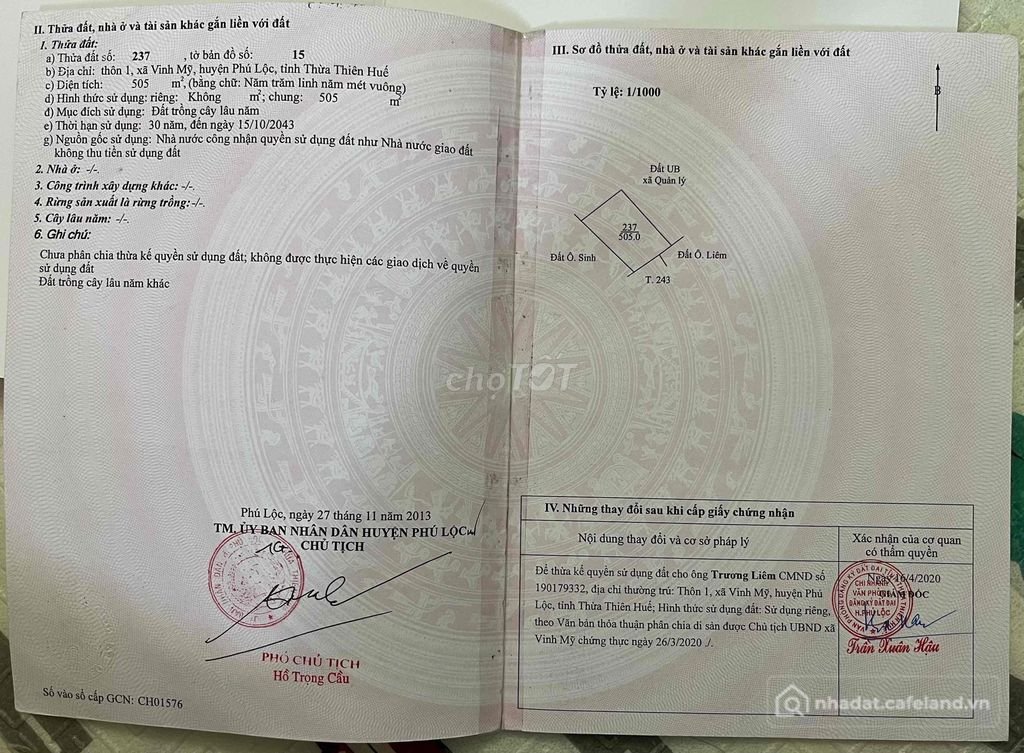 II. Thửa đất, nhà ở và tài sản khác gắn liền với đất
1. Thửa đất:
a) Thửa đất số: 237 , tờ bản đồ số: 15
b) Địa chỉ: thôn 1, xã Vinh Mỹ, huyện Phú Lộc, tỉnh Thừa Thiên Huế
c) Diện tích: 505 m², (bằng chữ: Năm trăm linh năm mét vuông)
d) Hình thức sử dụng: riêng: Không m²; chung: 505 m²
đ) Mục đích sử dụng: Đất trồng cây lâu năm
e) Thời hạn sử dụng: 30 năm, đến ngày 15/10/2043
g) Nguồn gốc sử dụng: Nhà nước công nhận quyền sử dụng đất như Nhà nước giao đất
không thu tiền sử dụng đất
2. Nhà ở: -/-.
3. Công trình xây dựng khác: -/-.
4. Rừng sản xuất là rừng trồng:-/-.
5. Cây lâu năm: -/-.
6. Ghi chú:
Chưa phân chia thừa kế quyền sử dụng đất; không được thực hiện các giao dịch về quyền
sử dụng đất
Đất trồng cây lâu năm khác
Phú Lộc, ngày 27 tháng 11 năm 2013
TM. ỦY BAN NHÂN DÂN HUYỆN PHÚ LỘC
CHỦ TỊCH
PHÓ CHỦ TỊCH
Hồ Trọng Cầu
Số vào sổ cấp GCN: CH01576
III. Sơ đồ thửa đất, nhà ở và tài sản khác gắn liền với đất
Tỷ lệ: 1/1000
B
Đất UB
xã Quản lý
237
505.0
Đất Ô. Sinh
Đất Ô. Liêm
T. 243
chợTỐT
IV. Những thay đổi sau khi cấp giấy chứng nhận
Nội dung thay đổi và cơ sở pháp lý
Xác nhận của cơ quan
có thẩm quyền
Để thừa kế quyền sử dụng đất cho ông Trương Liêm CMND số
190179332, địa chỉ thường trú: Thôn 1, xã Vinh Mỹ, huyện Phú
Lộc, tỉnh Thừa Thiên Huế; Hình thức sử dụng đất: Sử dụng riêng,
theo Văn bản thỏa thuận phân chia di sản được Chủ tịch UBND xã
Vinh Mỹ chứng thực ngày 26/3/2020 ./.
Ngày 16/4/2020
GIÁM ĐỐC
CHI NHÁNH
VĂN PHÒNG
ĐĂNG KÝ ĐẤT ĐAI
H.PHÚ LỘC
Trần Xuân Hậu
nhadat.cafeland.vn